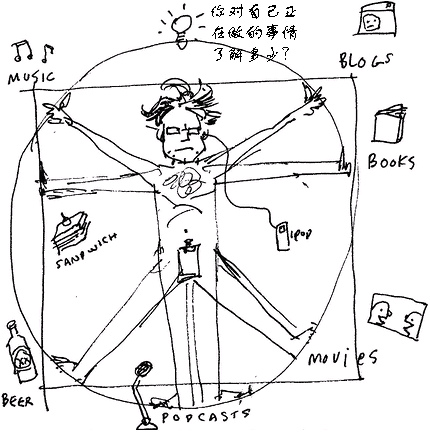 你对自己正
在做的事情
了解多少?
MUSIC
BLOGS
BOOKS
SANDWICH
IPOD
MOVIES
BEER
PODCASTS